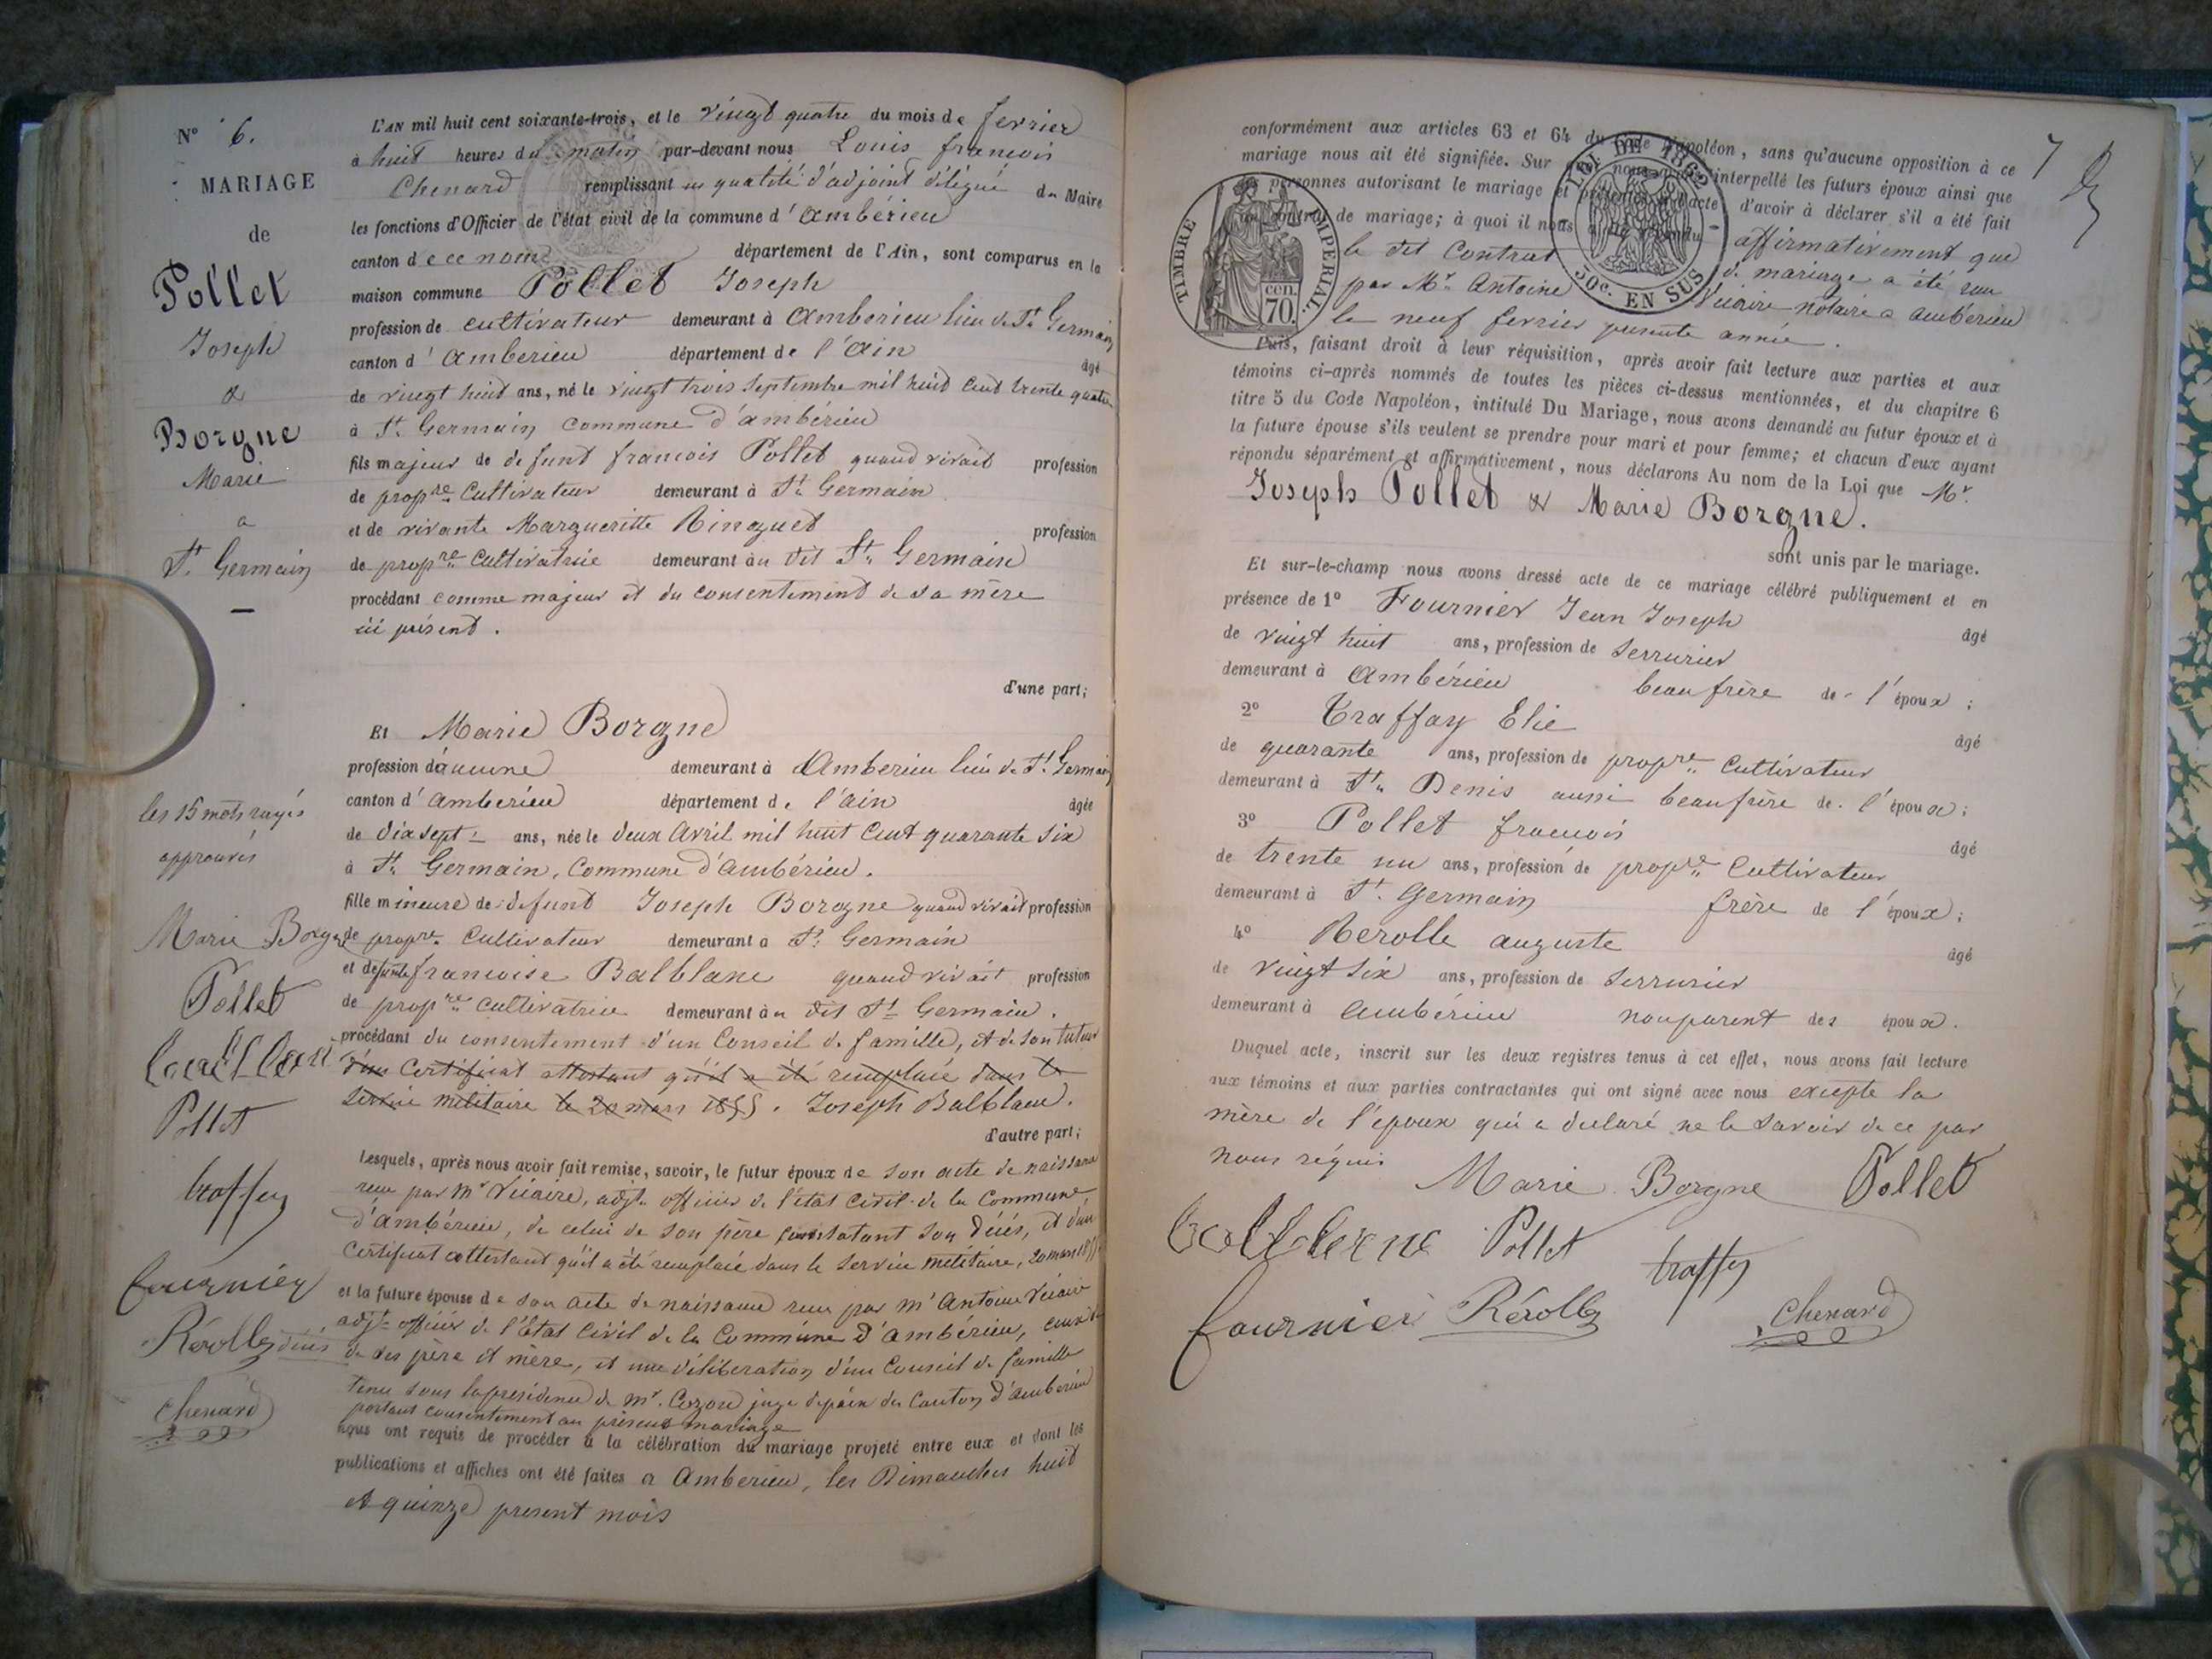 N° 6.
MARIAGE
de
Pollet
Joseph
&
Borgne
Marie
a
St. Germain
les 15 mots rayés
approuvés
Marie Borgne
Pollet
Pollet
traffey
fournier
Rérolle
Chenard
L'AN mil huit cent soixante-trois, et le vingt quatre du mois de fevrier
à huit heures du matin par-devant nous Louis francois
Chenard remplissant en qualité d'adjoint délégué du Maire
les fonctions d'Officier de l'état civil de la commune d'ambérieu
canton de ce nom département de l'Ain, sont comparus en la
maison commune Pollet Joseph
profession de cultivateur demeurant à Amberieu lieu de St. Germain
canton d'Amberieu département de l'ain âgé
de vingt huit ans, né le vingt trois Septembre mil huit cent trente quatre
à St. Germain commune d'ambérieu
fils majeur de defunt francois Pollet quand vivait profession
de propre. Cultivateur demeurant à St. Germain
et de vivante Margueritte Ringuet profession
de propre. Cultivatrice demeurant àu dit St. Germain
procédant comme majeur et du consentement de sa mère
ici présent.
d'une part;
Et Marie Borgne
profession d'aucune demeurant à Amberieu lieu de St. Germain
canton d'amberieu département de l'ain âgée
de dix sept ans, née le deux Avril mil huit cent quarante six
à St. Germain, Commune d'ambérieu.
fille mineure de defunt Joseph Borgne quand vivait profession
de propre. Cultivateur demeurant à St. Germain
et defunte francoise Balblanc quand vivait profession
de propre. cultivatrice demeurant àu dit St. Germain.
procédant du consentement d'un Conseil de famille, et de son tuteur
d'un Certificat attestant qu'il a été remplacé dans le
Service militaire le 20 mars 1855. Joseph Balblanc.
d'autre part;
Lesquels, après nous avoir fait remise, savoir, le futur époux de son acte de naissance
recu par Mr Vicaire, adjt. officier de l'état civil de la Commune
d'Ambérieu, de celui de son père constatant son décès, et d'un
Certificat attestant qu'il a été remplacé dans le Service militaire, 20 mars 1855
et la future épouse de son acte de naissance recu par Mr Antoine Vicaire
adjt. officier de l'Etat Civil de la Commune d'ambérieu, ceux de décès
de ses père et mère, et une délibération d'un Conseil de famille
tenu sous la présidence de Mr. Cozon juge de paix du Canton d'ambérieu
portant consentement au présent mariage
nous ont requis de procéder à la célébration du mariage projeté entre eux et dont les
publications et affiches ont été faites a Amberieu, les Dimanches huit
et quinze present mois
7
conformément aux articles 63 et 64 du Code Napoléon, sans qu'aucune opposition à ce
mariage nous ait été signifiée. Sur quoi nous avons interpellé les futurs époux ainsi que
les personnes autorisant le mariage et présentes à l'acte d'avoir à déclarer s'il a été fait
un contrat de mariage; à quoi il nous a été répondu affirmativement que
le dit Contrat de mariage a été recu
par Mr. Antoine Vicaire notaire a ambérieu
le neuf fevrier presente année.
TIMBRE IMPERIAL.
cen.
70.
LOI DE 1862
50C. EN SUS
Puis, faisant droit à leur réquisition, après avoir fait lecture aux parties et aux
témoins ci-après nommés de toutes les pièces ci-dessus mentionnées, et du chapitre 6
titre 5 du Code Napoléon, intitulé Du Mariage, nous avons demandé au futur époux et à
la future épouse s'ils veulent se prendre pour mari et pour femme; et chacun d'eux ayant
répondu séparément et affirmativement, nous déclarons Au nom de la Loi que Mr.
Joseph Pollet & Marie Borgne.
sont unis par le mariage.
Et sur-le-champ nous avons dressé acte de ce mariage célébré publiquement et en
présence de 1° Fournier Jean Joseph âgé
de vingt huit ans, profession de Serrurier
demeurant à Ambérieu beau frère de l'époux;
2° Traffay Elie âgé
de quarante ans, profession de propre. Cultivateur
demeurant à St. Denis aussi beaufrère de l'époux;
3° Pollet francois âgé
de trente un ans, profession de propre. Cultivateur
demeurant à St. Germain frère de l'époux;
4° Rerolle auguste âgé
de vingt six ans, profession de Serrurier
demeurant à ambérieu non parent des époux.
Duquel acte, inscrit sur les deux registres tenus à cet effet, nous avons fait lecture
aux témoins et aux parties contractantes qui ont signé avec nous excepte la
mère de l'époux qui a declaré ne le savoir de ce par
nous réquis
Marie Borgne Pollet
Pollet traffey
fournier Rérolle Chenard